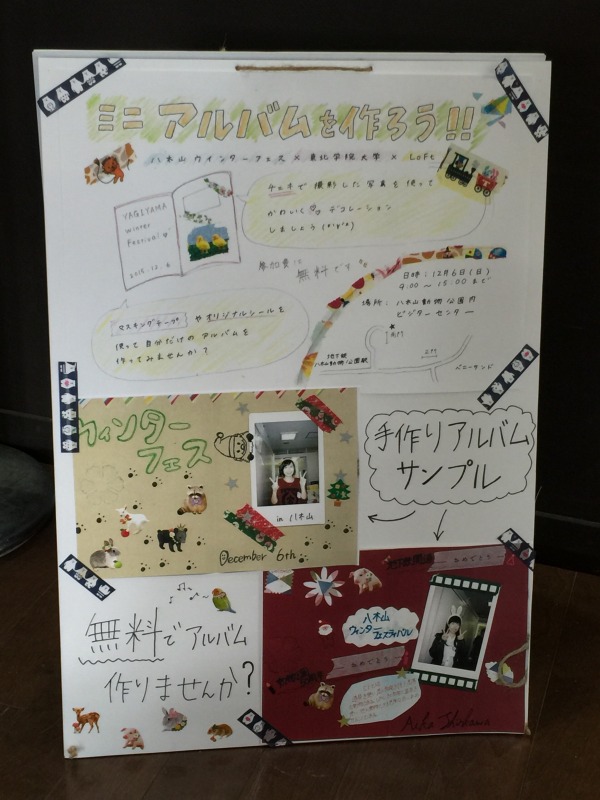 ミニアルバムを作ろう!!
八木山ウインターフェス × 東北学院大学 × LoFt
チェキで撮影した写真を使って
かわいく デコレーション
しましょう
YAGIYAMA
winter
Festival
2015.12.6
参加費は
無料です
日時:12月6日(日)
9:00 〜 15:00まで
場所: 八木山動物公園内
ビジターセンター
マスキングテープ や オリジナルシールを
使って自分だけの アルバムを
作ってみませんか?
西門
正門
地下鉄
八木山動物公園駅
ベニーランド
ウィンター
フェス
in 八木山
December 6th
手作りアルバム
サンプル
無料でアルバム
作りませんか?
おめでとう
八木山
ウィンターフェスティバル
おめでとう